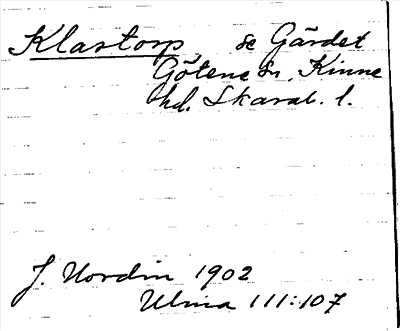 Klastorp, se Gärdet
Götene sn, Kinne
hd. Skarab. l.
J. Nordin 1902
Ulma 111:107